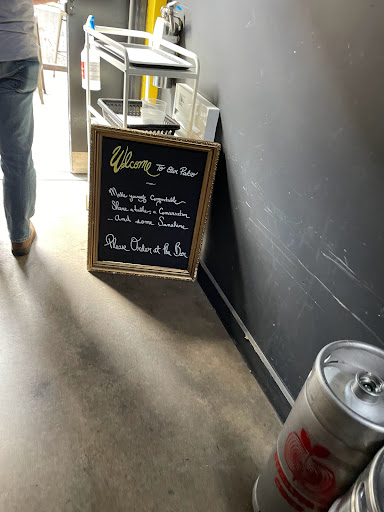 Welcome To Our Patio
Make yourself Comfortable
Share a bottle, a Conversation
and some Sunshine
Please Order at the Bar